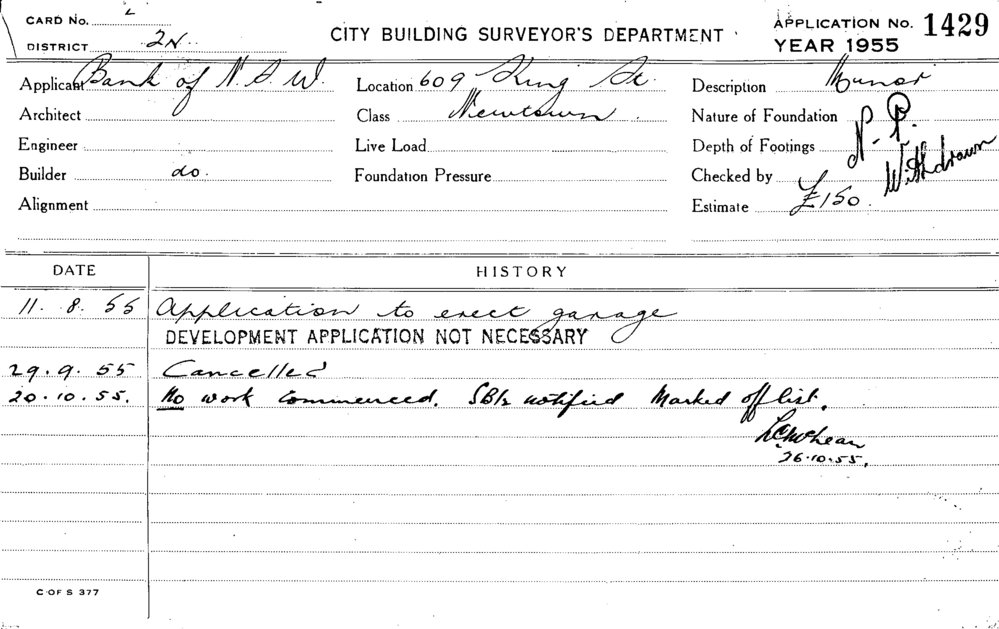 CARD No. 2
CITY BUILDING SURVEYOR'S DEPARTMENT
APPLICATION No. 1429
DISTRICT 2N.
YEAR 1955
Applicant Bank of N.S.W. Location 609 King St. Description Minor
Architect Class Newtown Nature of Foundation N.P.
Engineer Live Load Depth of Footings Withdrawn
Builder do. Foundation Pressure Checked by
Alignment Estimate £150.
DATE HISTORY
11. 8. 55 Application to erect garage
DEVELOPMENT APPLICATION NOT NECESSARY
29. 9. 55 Cancelled
20. 10. 55. No work commenced. notified Marked off list.
26.10.55.
C OF S 377